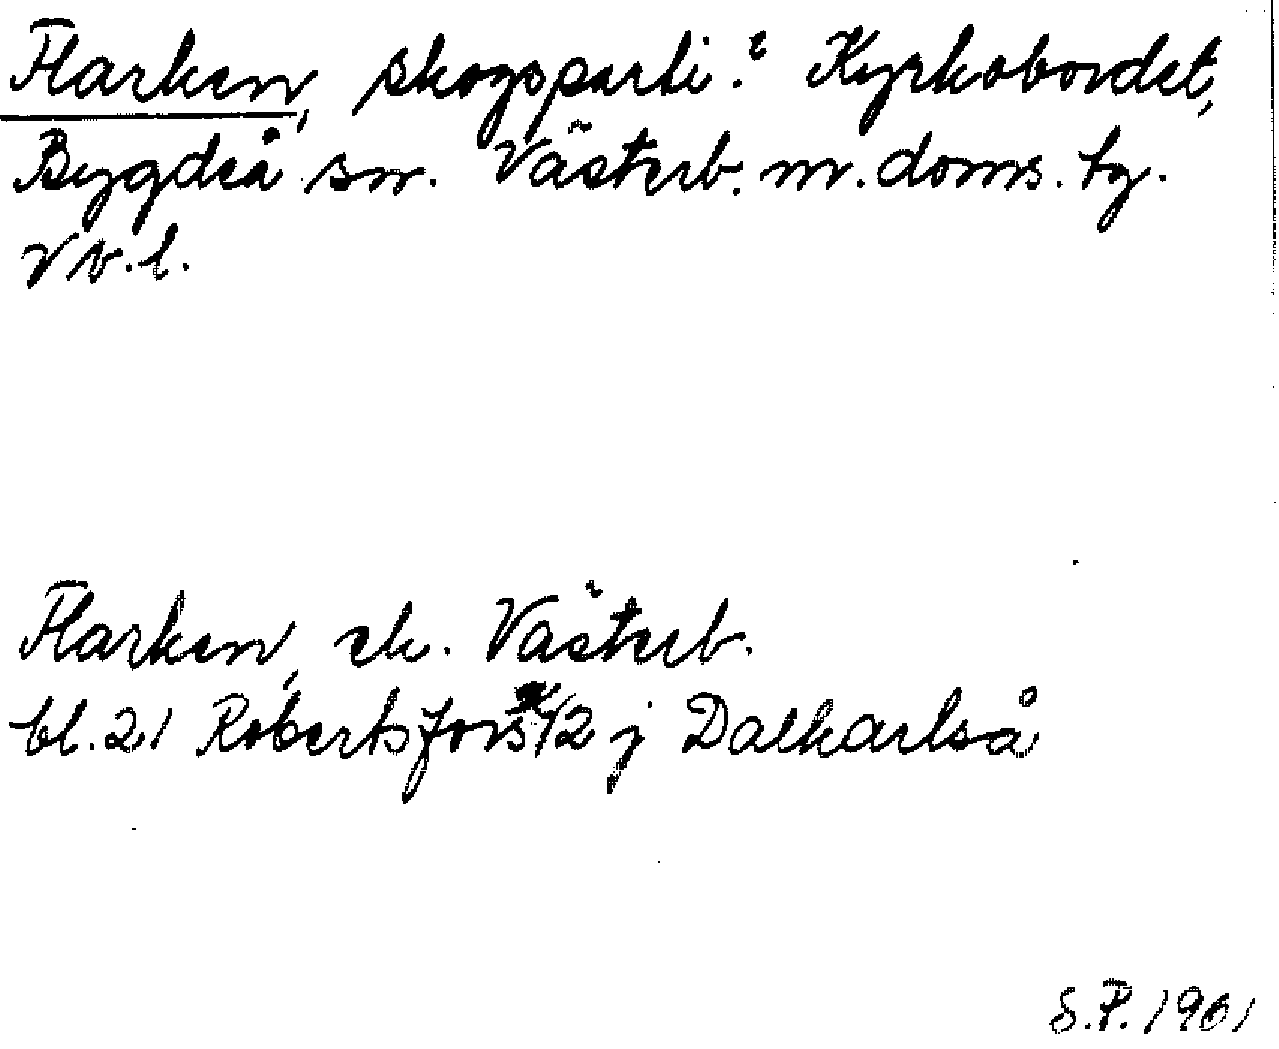 Flarken, skogsparti i Kyrkobordet,
Bygdeå sn. Västerb. m. doms. tg.
Vb. l.
Flarken, ek. Västerb.
bl. 21 Robertsfors 1/2 j Dalkarlså
S.P. 1961